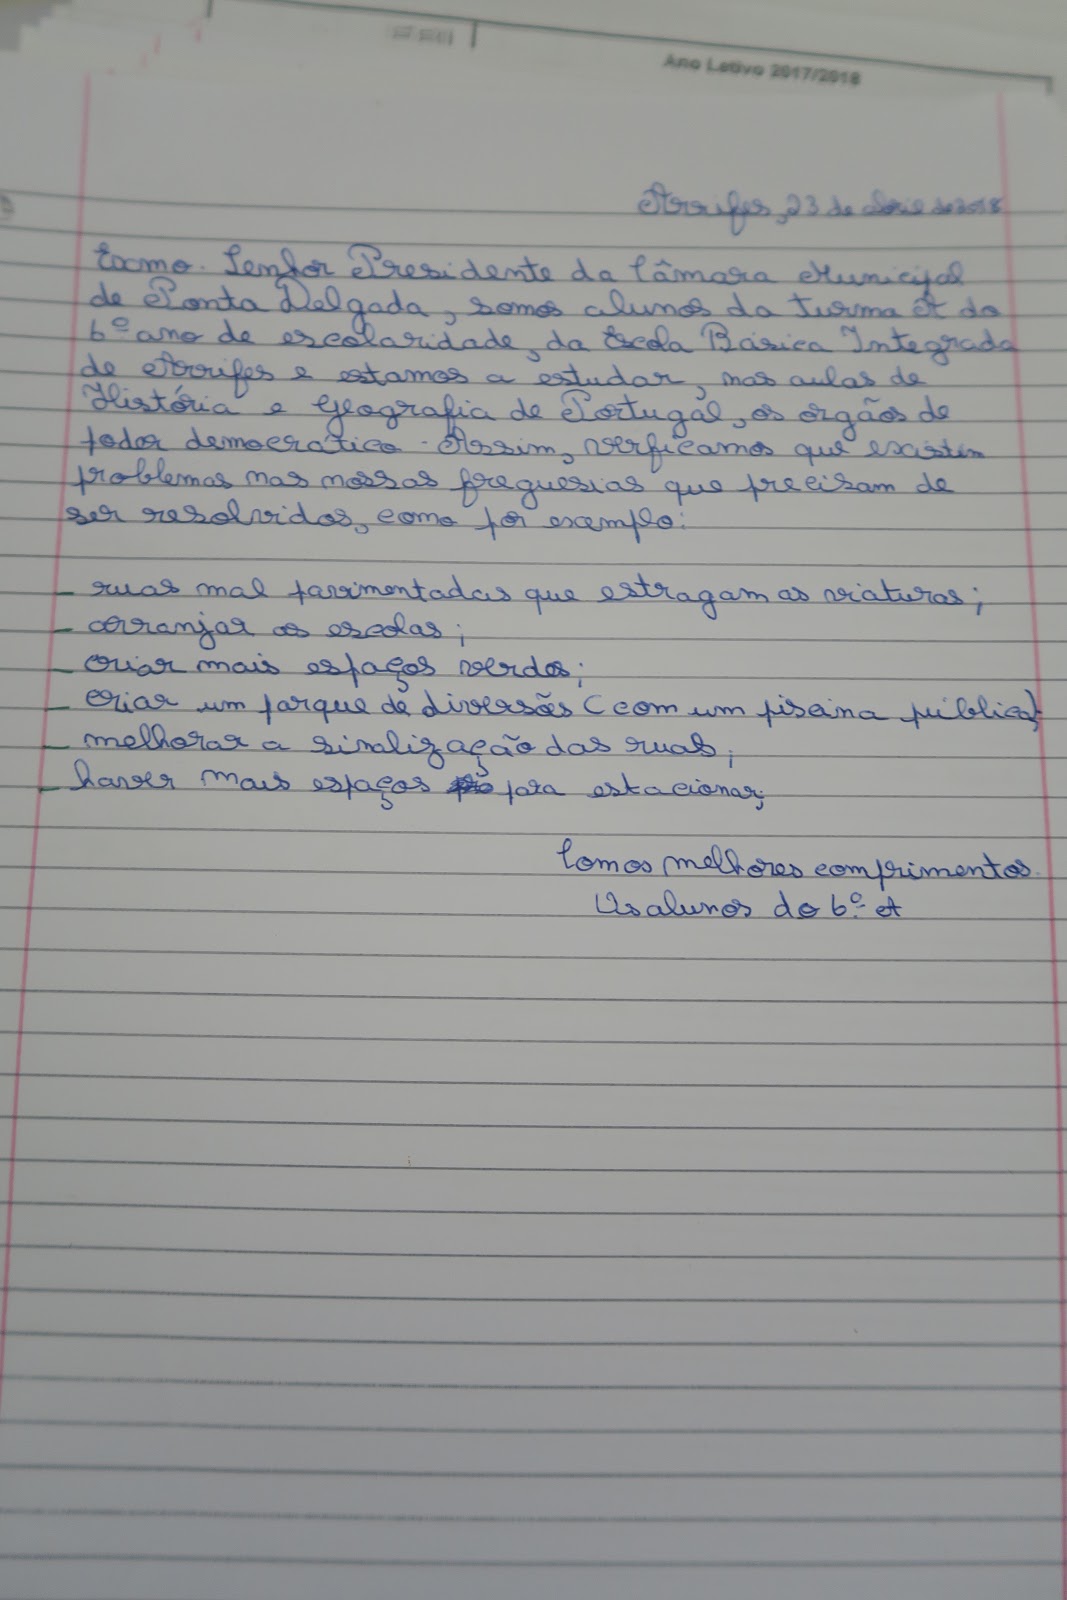 Ano Letivo 2017/2018
Arrifes, 23 de abril de 2018
Excmo. Senhor Presidente da Câmara Municipal
de Ponta Delgada, somos alunos da turma A do
6º ano de escolaridade, da Escola Básica Integrada
de Arrifes e estamos a estudar, nas aulas de
História e Geografia de Portugal, os orgãos de
poder democrático. Assim, verficamos que existem
problemas nas nossas freguesias que precisam de
ser resolvidos, como por exemplo:
- ruas mal pavimentadas que estragam as viaturas;
- arranjar as escolas;
- criar mais espaços verdes;
- criar um parque de diversões (com um piscina pública);
- melhorar a sinalização das ruas;
- haver mais espaços para estacionar;
Com os melhores comprimentos.
Os alunos do 6º A